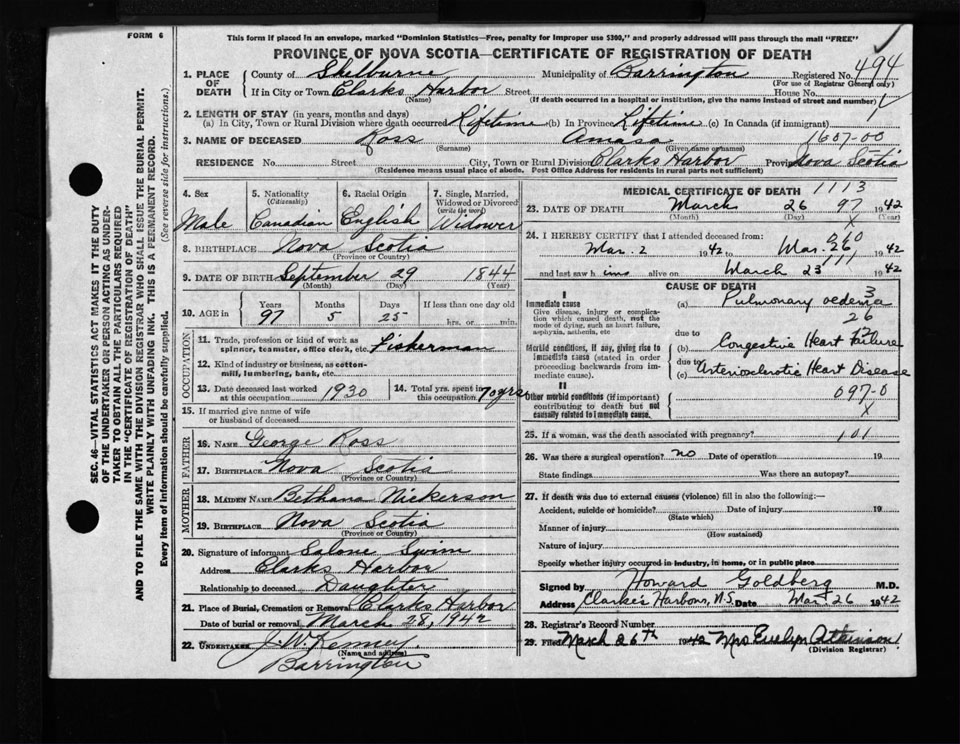 FORM 6
This form if placed in an envelope, marked "Dominion Statistics—Free, penalty for improper use $300," and properly addressed will pass through the mail "FREE"
PROVINCE OF NOVA SCOTIA—CERTIFICATE OF REGISTRATION OF DEATH
SEC. 46—VITAL STATISTICS ACT MAKES IT THE DUTY
OF THE UNDERTAKER OR PERSON ACTING AS UNDER-
TAKER TO OBTAIN ALL THE PARTICULARS REQUIRED
IN THE "CERTIFICATE OF REGISTRATION OF DEATH"
AND TO FILE THE SAME WITH THE DIVISION REGISTRAR WHO SHALL ISSUE THE BURIAL PERMIT.
WRITE PLAINLY WITH UNFADING INK. THIS IS A PERMANENT RECORD.
Every item of information should be carefully supplied. (See reverse side for instructions.)
1. PLACE OF DEATH
County of Shelburne Municipality of Barrington Registered No. 494
(For use of Registrar General only)
If in City or Town Clarks Harbor Street House No.
(Name) (If death occurred in a hospital or institution, give the name instead of street and number)
2. LENGTH OF STAY (in years, months and days)
(a) In City, Town or Rural Division where death occurred Lifetime (b) In Province Lifetime (c) In Canada (if immigrant)
3. NAME OF DECEASED Ross Amasa 1607-00
(Surname) (Given name or names)
RESIDENCE No. Street City, Town or Rural Division Clarks Harbor Province Nova Scotia
(Residence means usual place of abode. Post Office Address for residents in rural parts not sufficient)
4. Sex
Male
5. Nationality
(Citizenship)
Canadian
6. Racial Origin
English
7. Single, Married, Widowed or Divorced
(write the word)
Widower
8. BIRTHPLACE Nova Scotia
(Province or Country)
9. DATE OF BIRTH September 29 1844
(Month) (Day) (Year)
10. AGE in Years Months Days If less than one day old
97 5 25 hrs. or min.
OCCUPATION
11. Trade, profession or kind of work as
spinner, teamster, office clerk, etc. Fisherman
12. Kind of industry or business, as cotton-
mill, lumbering, bank, etc.
13. Date deceased last worked
at this occupation 1930
14. Total yrs. spent in
this occupation 70 yrs
15. If married give name of wife
or husband of deceased
FATHER
16. NAME George Ross
17. BIRTHPLACE Nova Scotia
(Province or Country)
MOTHER
18. MAIDEN NAME Bethana Nickerson
19. BIRTHPLACE Nova Scotia
(Province or Country)
20. Signature of informant Salone Swim
Address Clarks Harbor
Relationship to deceased Daughter
21. Place of Burial, Cremation or Removal Clarks Harbor
Date of burial or removal March 28, 1942
22. UNDERTAKER J. W. Kenney
(Name and address)
Barrington
MEDICAL CERTIFICATE OF DEATH 1113
23. DATE OF DEATH March 26 97 1942
(Month) (Day) (Year)
24. I HEREBY CERTIFY that I attended deceased from:
Mar. 2 1942 to Mar. 26 1942
and last saw him alive on March 23 1942
CAUSE OF DEATH
I
Immediate cause
Give disease, injury or complication which caused death, not the mode of dying, such as heart failure, asphyxia, asthenia, etc
(a) Pulmonary oedema 3
26
due to
Morbid conditions, if any, giving rise to immediate cause (stated in order proceeding backwards from immediate cause).
(b) Congestive Heart Failure
due to
(c) Arteriosclerotic Heart Disease
II
Other morbid conditions (if important) contributing to death but not causally related to immediate cause.
097-0
X
25. If a woman, was the death associated with pregnancy? 101
26. Was there a surgical operation? no Date of operation 19
State findings Was there an autopsy?
27. If death was due to external causes (violence) fill in also the following:—
Accident, suicide or homicide? Date of injury 19
(State which)
Manner of injury
(How sustained)
Nature of injury
Specify whether injury occurred in industry, in home, or in public place
Signed by Howard Goldberg M.D.
Address Clarke's Harbour, N.S. Date Mar 26 1942
28. Registrar's Record Number
29. Filed March 26th 1942 Mrs Evelyn Atkinson
(Division Registrar)